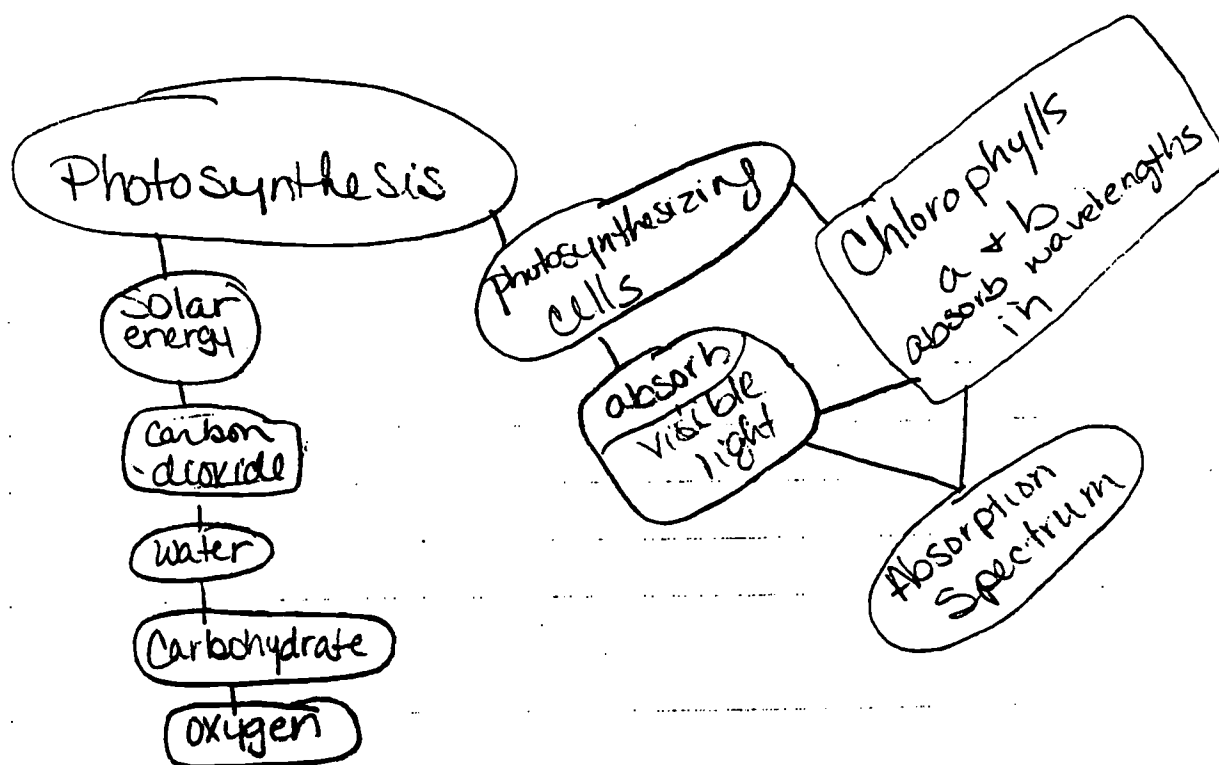 Photosynthesis
Solar
energy
Carbon
-dioxide
water
Carbohydrate
oxygen
photosynthesizing
cells
absorb
visible
light
Chlorophylls
a + b
absorb wavelengths
in
Absorption
Spectrum